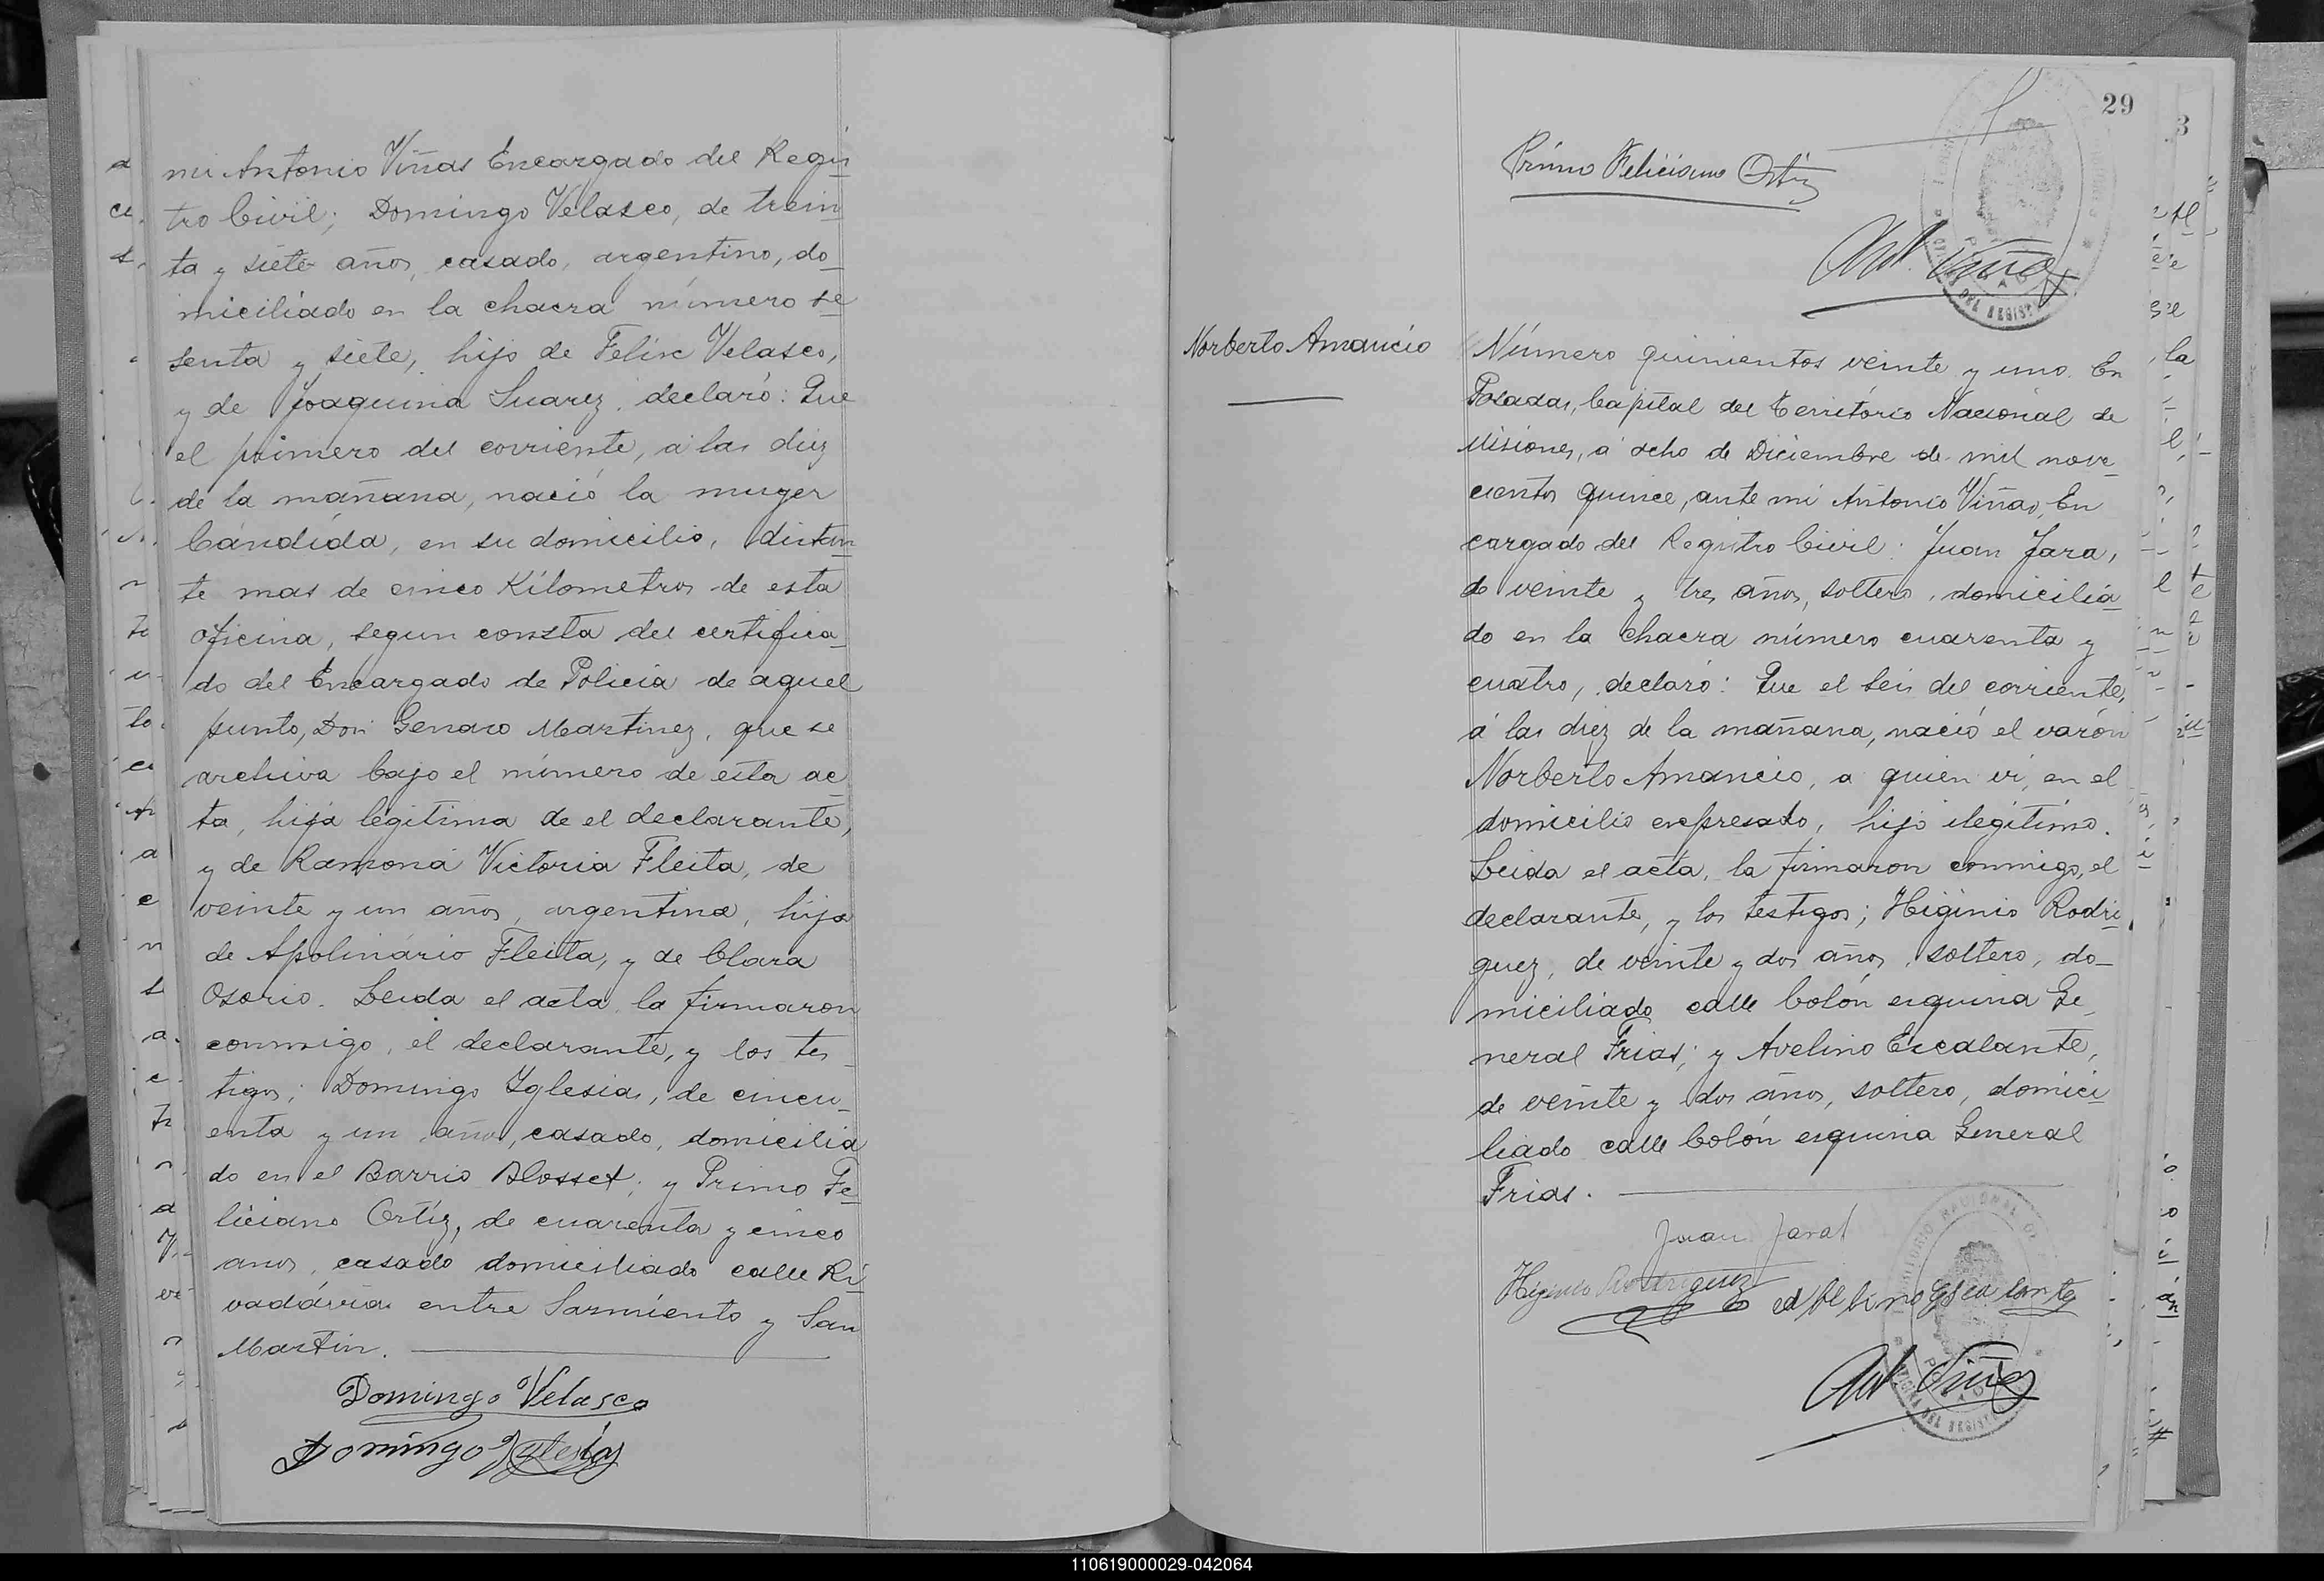 mi Antonio Viñas Encargado del Regis
tro Civil; Domingo Velasco, de trein
ta y siete años, casado, argentino, do
miciliado en la chacra número se
senta y siete, hijo de Felix Velasco,
y de Joaquina Suarez, declaró: Que
el primero del corriente, a las diez
de la mañana, nació la muger
Cándida, en su domicilio, distan
te mas de cinco Kilometros de esta
oficina, segun consta del certifica
do del Encargado de Policia de aquel
punto, Don Genaro Martinez, que se
archiva bajo el número de esta ac
ta, hija legitima de el declarante,
y de Ramona Victoria Fleita, de
veinte y un años, argentina, hija
de Apolinario Fleita, y de Clara
Osorio. Leida el acta, la firmaron
conmigo, el declarante, y los tes
tigos; Domingo Yglesias, de cincu
enta y un años, casado, domicilia
do en el Barrio Blosset; y Primo Fe
liciano Ortíz, de cuarenta y cinco
anos, casado domiciliado calle Ri
vadávia entre Sarmiento y San
Martin.
Domingo Velasco
Domingo Yglesias
29
Primo Feliciano Ortiz
Ant. Viñas
Norberto Amancio
Número quinientos veinte y uno. En
Posadas, Capital del Territorio Nacional de
Misiones, á ocho de Diciembre de mil nove
cientos quince, ante mi Antonio Viñas, En
cargado del Registro Civil: Juan Jara,
de veinte y tres años, soltero, domicilia
do en la chacra número cuarenta y
cuatro, declaró: Que el seis del corriente,
á las diez de la mañana, nació el varón
Norberto Amancio, a quien vi, en el
domicilio expresado, hijo ilegítimo.
Leida el acta, la firmaron conmigo, el
declarante, y los testigos; Higinio Rodri
guez, de veinte y dos años, soltero, do
miciliado calle Colón esquina Ge
neral Frias; y Avelino Escalante,
de veinte y dos años, soltero, domici
liado calle Colón esquina General
Frias.
Juan Jara
Higinio Rodriguez
Abelino Escalante
Ant. Viñas
110619000029-042064